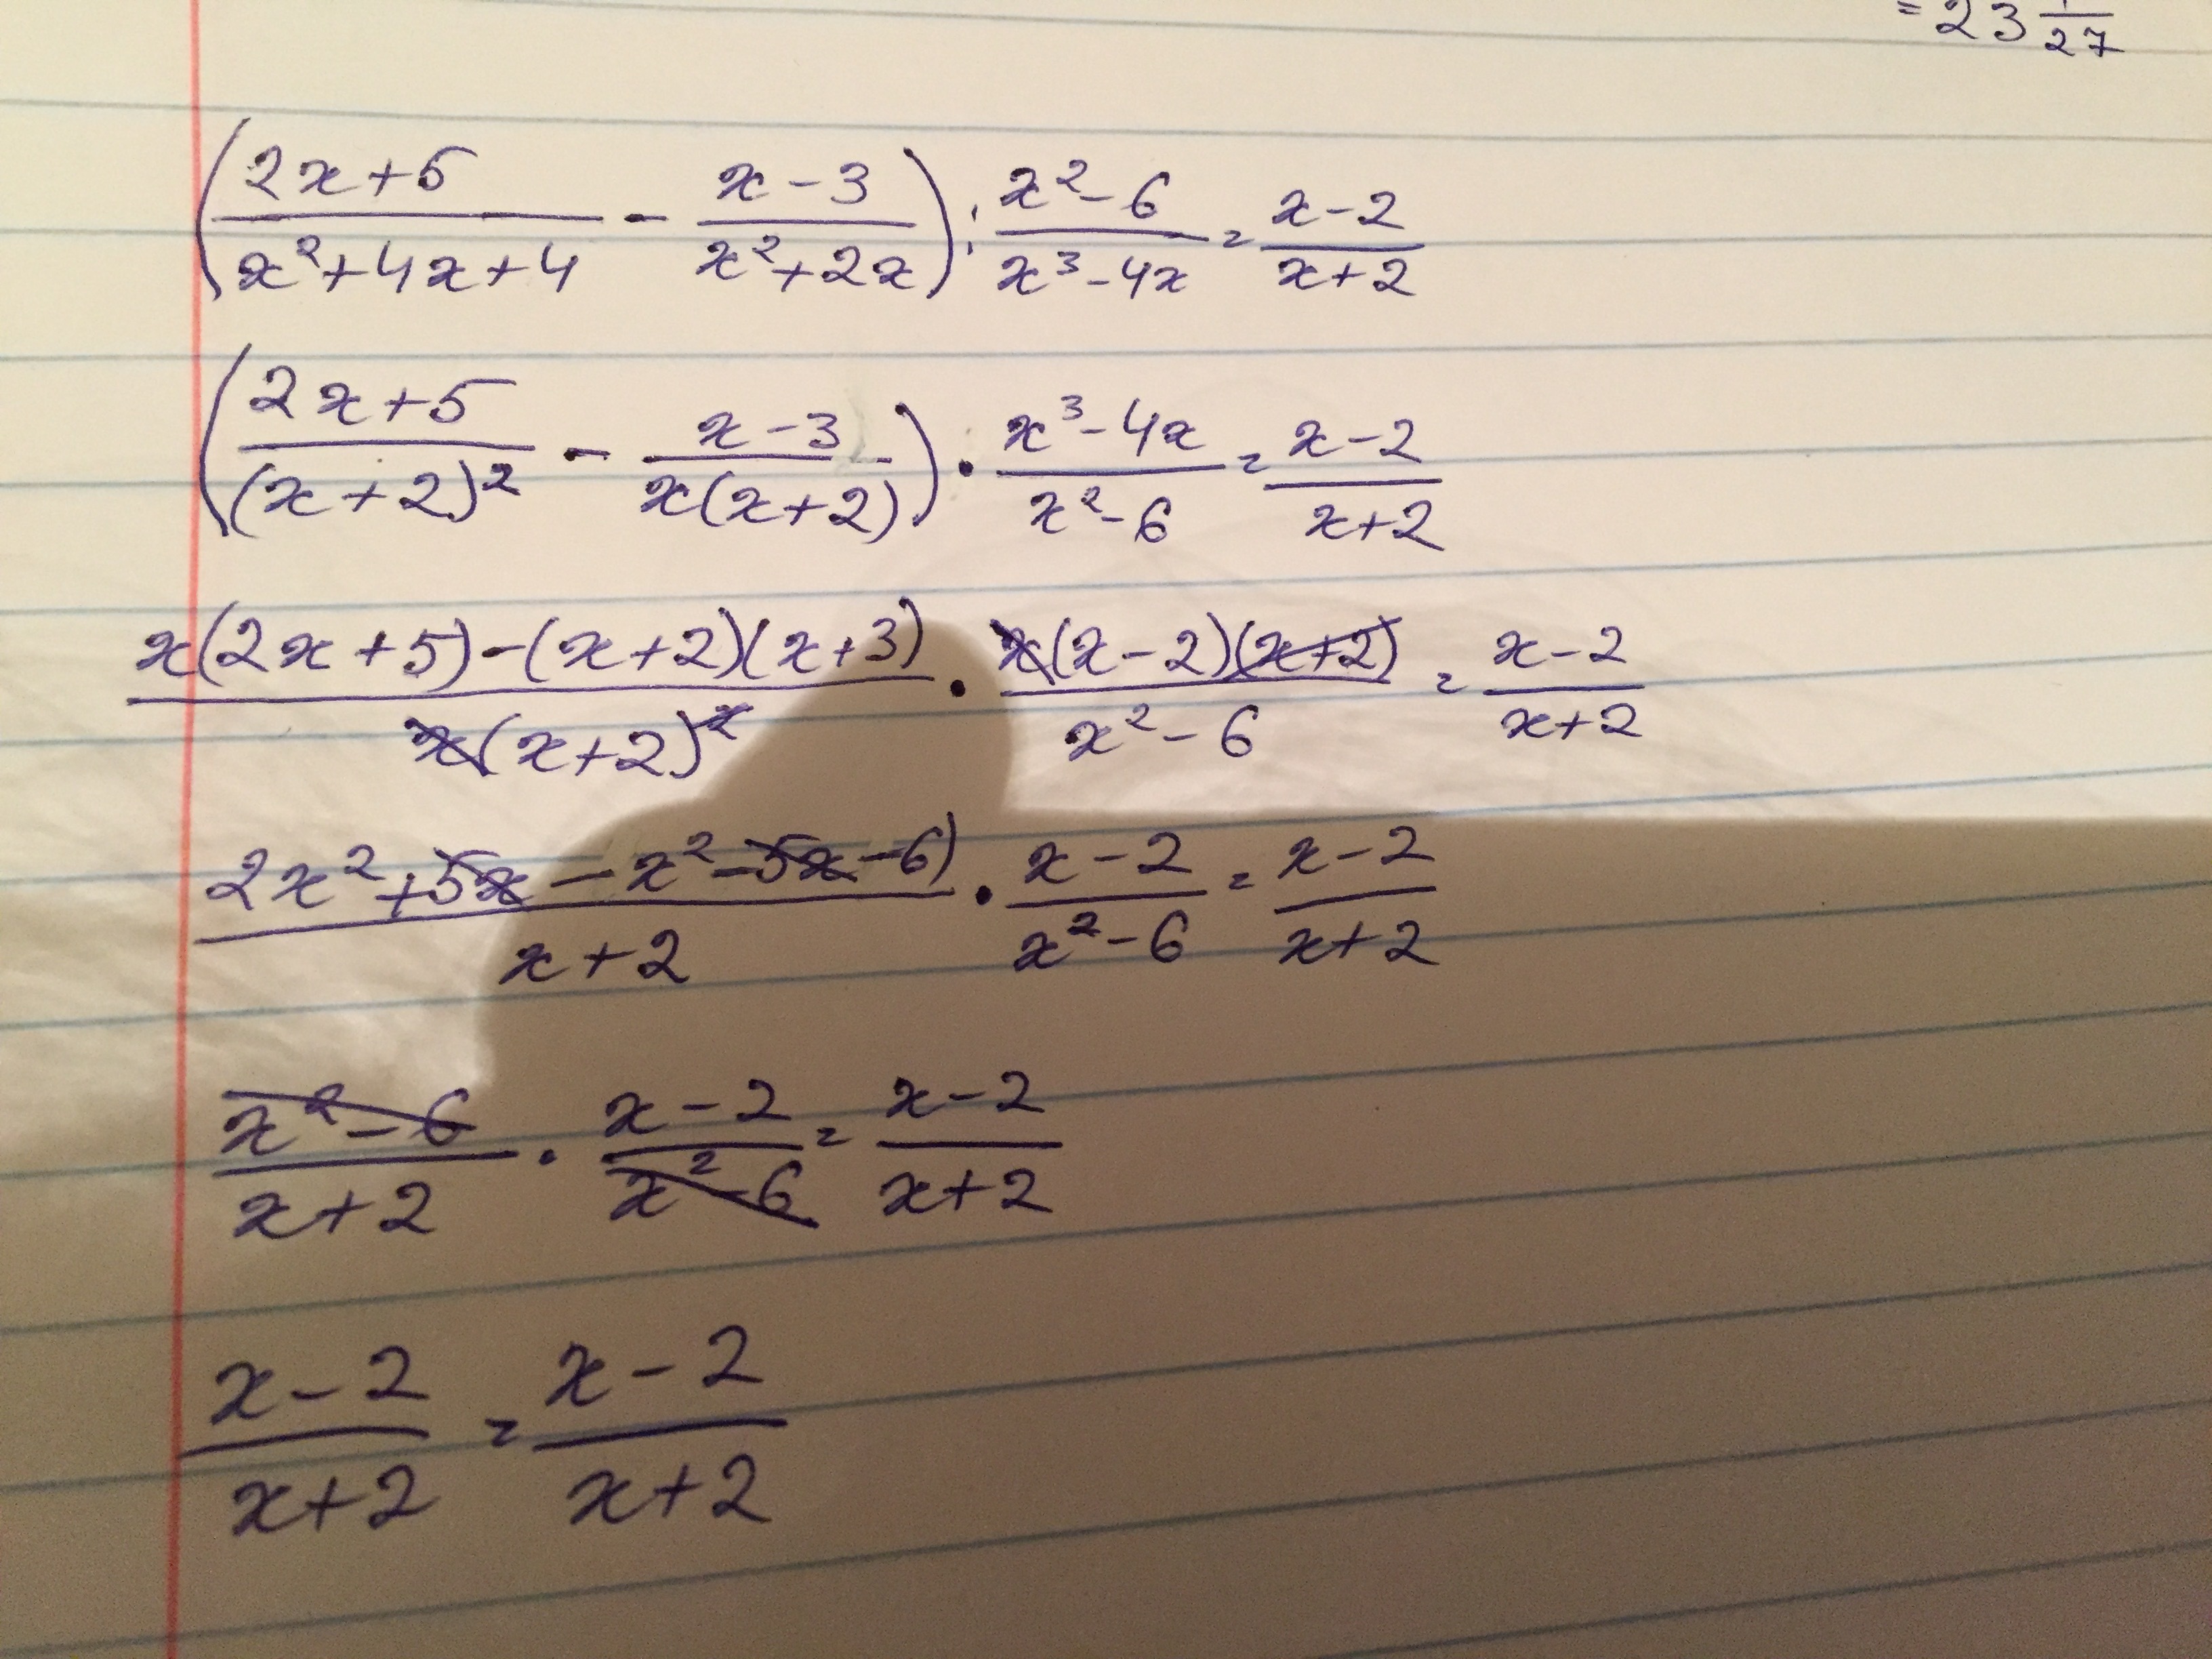 = 23 1/27
((2x+5)/(x²+4x+4) - (x-3)/(x²+2x)) : (x²-6)/(x³-4x) = (x-2)/(x+2)
((2x+5)/(x+2)² - (x-3)/(x(x+2))) · (x³-4x)/(x²-6) = (x-2)/(x+2)
(x(2x+5)-(x+2)(x+3))/(x(x+2)²) · (x(x-2)(x+2))/(x²-6) = (x-2)/(x+2)
(2x²+5x-x²-5x-6))/(x+2) · (x-2)/(x²-6) = (x-2)/(x+2)
(x²-6)/(x+2) · (x-2)/(x²-6) = (x-2)/(x+2)
(x-2)/(x+2) = (x-2)/(x+2)